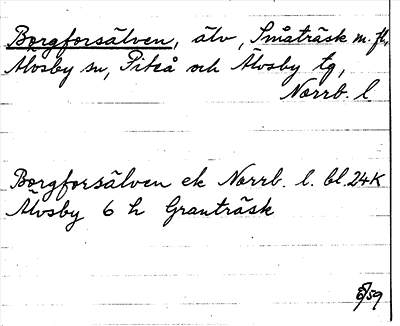 Borgforsälven, älv, Småträsk m. fl.,
Älvsby sn, Piteå och Älvsby tg,
Norrb. l.
Borgforsälven ek Norrb. l. bl. 24K
Älvsby 6 h Granträsk
/59